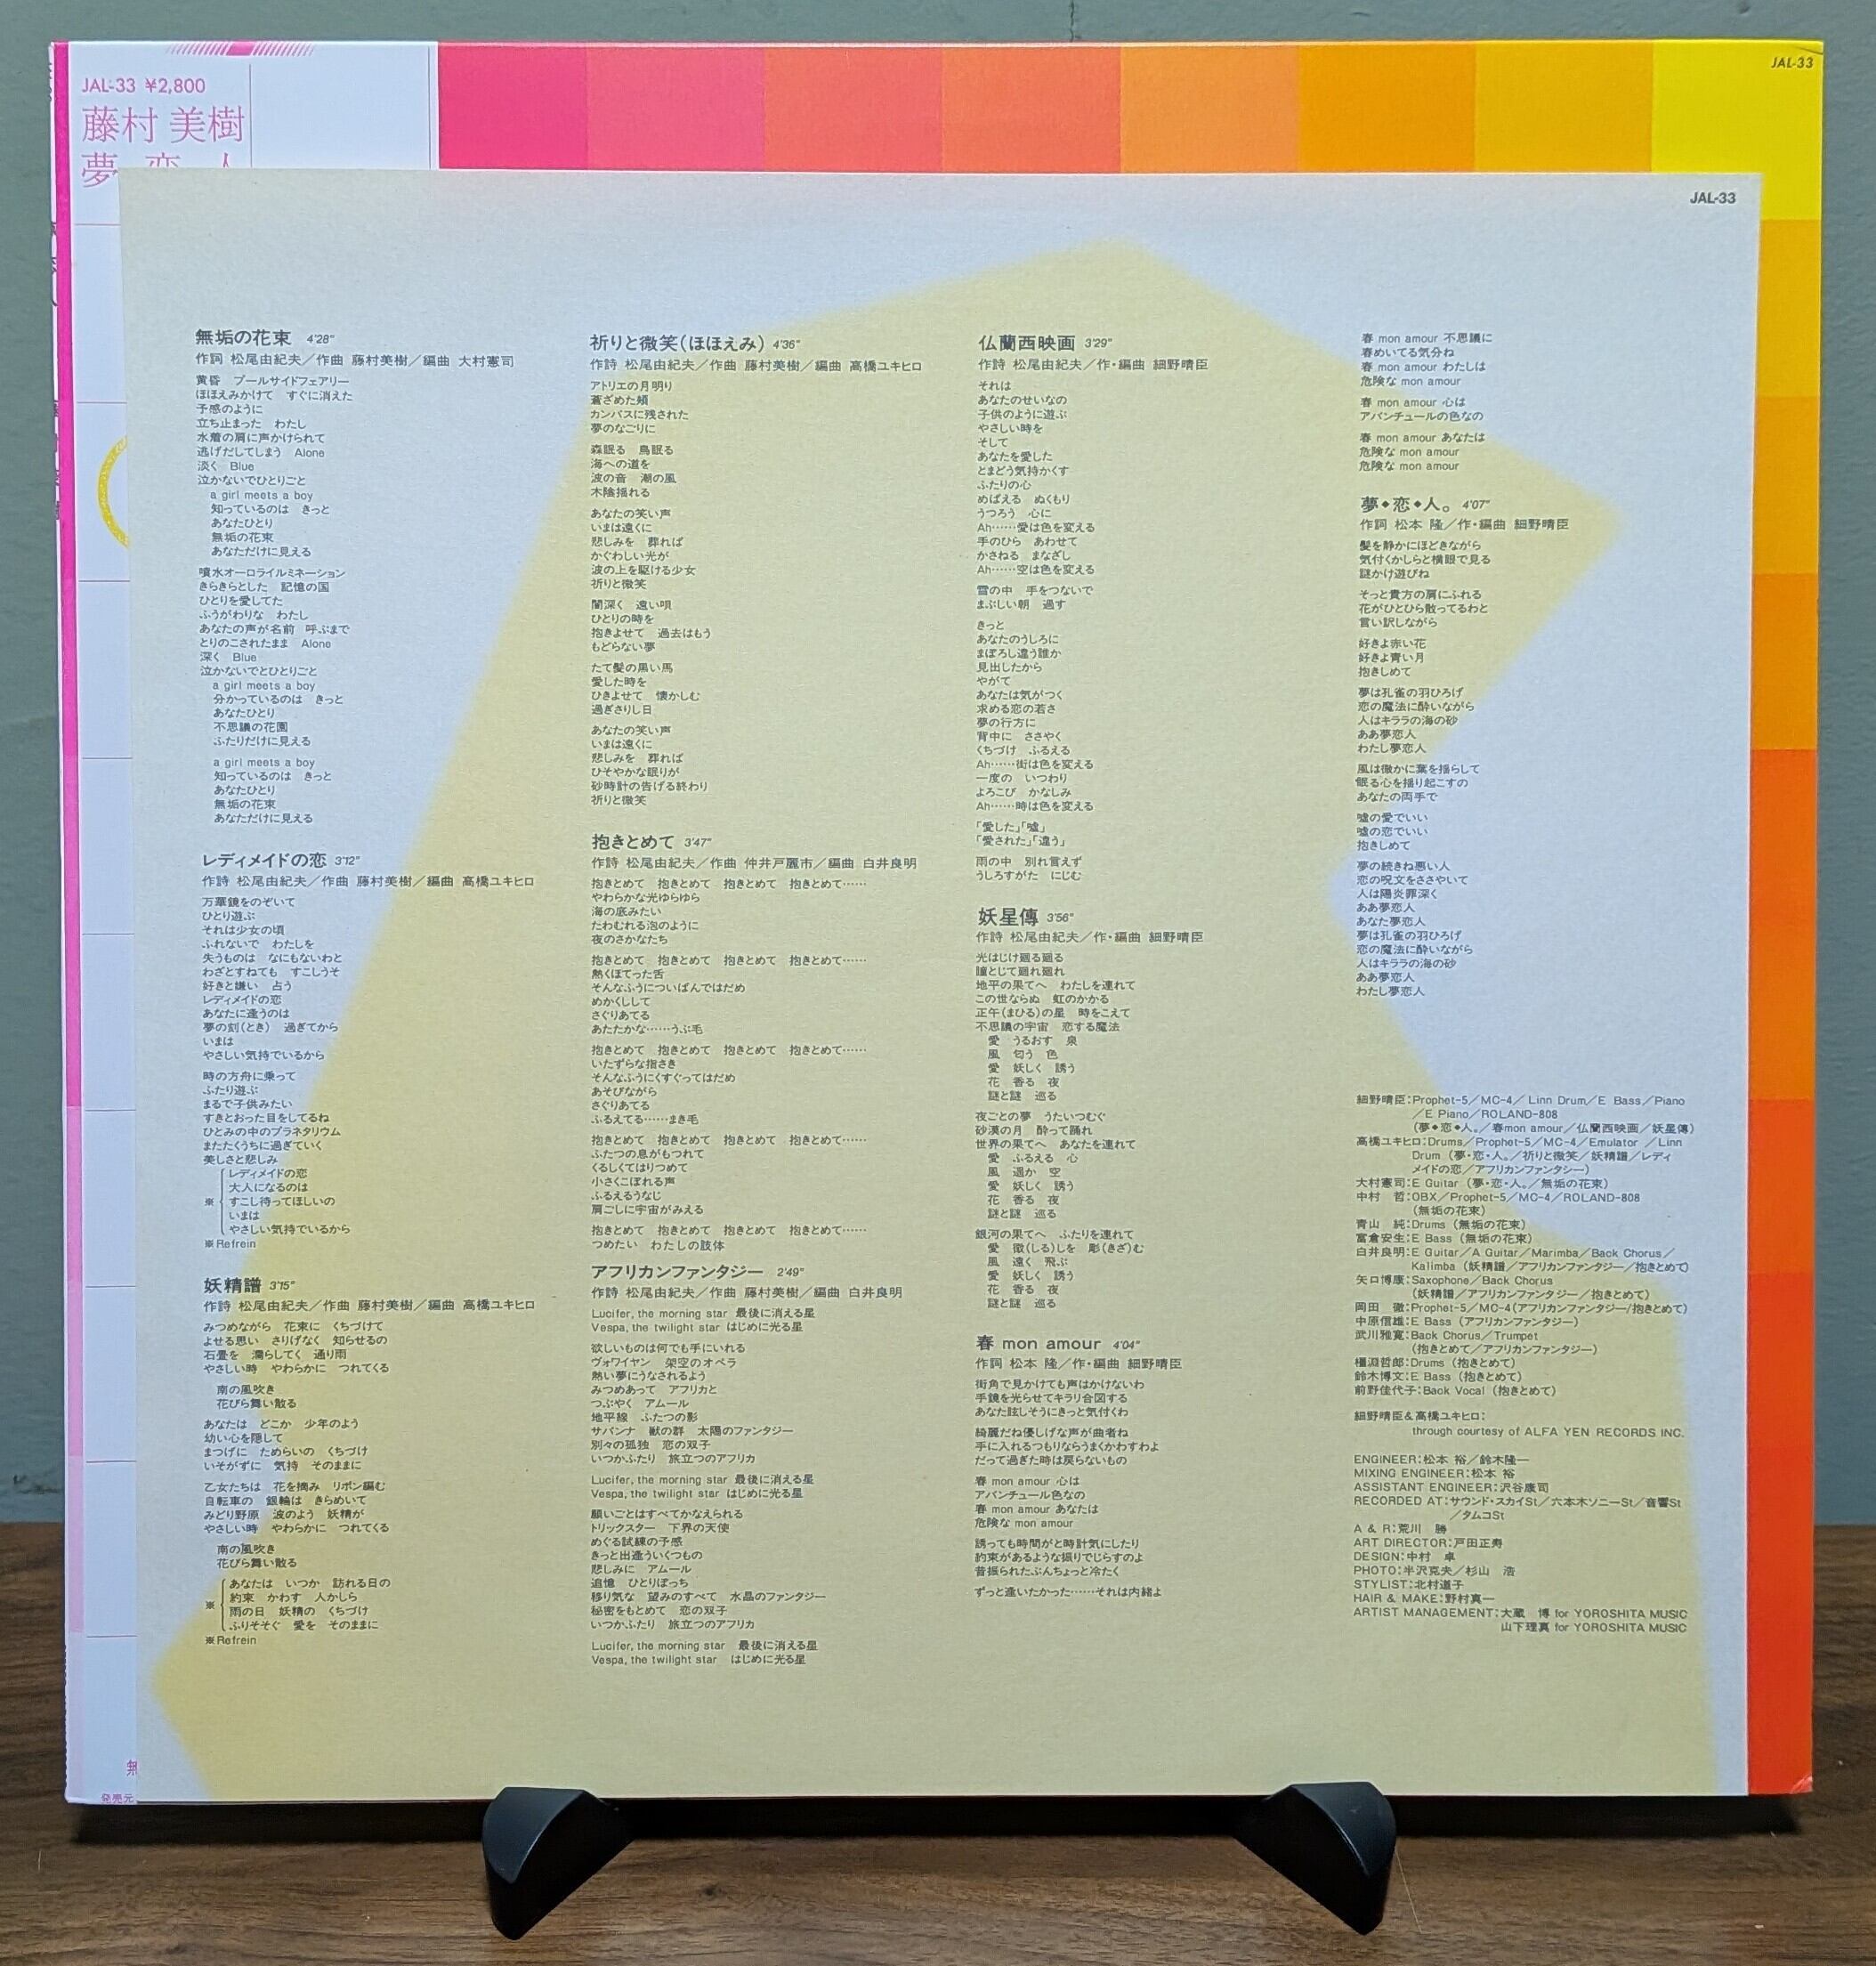 JAL-33 ¥2,800
藤村 美樹
夢 恋 人
JAL-33
JAL-33
無垢の花束 4'28"
作詞 松尾由紀夫／作曲 藤村美樹／編曲 大村憲司
黄昏 プールサイドフェアリー
ほほえみかけて すぐに消えた
予感のように
立ち止まった わたし
水着の肩に声かけられて
逃げだしてしまう Alone
淡く Blue
泣かないでひとりごと
a girl meets a boy
知っているのは きっと
あなたひとり
無垢の花束
あなただけに見える
噴水オーロライルミネーション
きらきらとした 記憶の国
ひとりを愛してた
ふうがわりな わたし
あなたの声が名前 呼ぶまで
とりのこされたまま Alone
深く Blue
泣かないでとひとりごと
a girl meets a boy
分かっているのは きっと
あなたひとり
不思議の花園
ふたりだけに見える
a girl meets a boy
知っているのは きっと
あなたひとり
無垢の花束
あなただけに見える
レディメイドの恋 3'12"
作詩 松尾由紀夫／作曲 藤村美樹／編曲 高橋ユキヒロ
万華鏡をのぞいて
ひとり遊ぶ
それは少女の頃
ふれないで わたしを
失うものは なにもないわと
わざとすねても すこしうそ
好きと嫌い 占う
レディメイドの恋
あなたに逢うのは
夢の刻(とき) 過ぎてから
いまは
やさしい気持でいるから
時の方舟に乗って
ふたり遊ぶ
まるで子供みたい
すきとおった目をしてるね
ひとみの中のプラネタリウム
またたくうちに過ぎていく
美しさと悲しみ
レディメイドの恋
大人になるのは
※ すこし待ってほしいの
いまは
やさしい気持でいるから
※Refrein
妖精譜 3'15"
作詩 松尾由紀夫／作曲 藤村美樹／編曲 高橋ユキヒロ
みつめながら 花束に くちづけて
よせる思い さりげなく 知らせるの
石畳を 濡らしてく 通り雨
やさしい時 やわらかに つれてくる
南の風吹き
花びら舞い散る
あなたは どこか 少年のよう
幼い心を隠して
まつげに ためらいの くちづけ
いそがずに 気持 そのままに
乙女たちは 花を摘み リボン編む
自転車の 銀輪は きらめいて
みどり野原 波のよう 妖精が
やさしい時 やわらかに つれてくる
南の風吹き
花びら舞い散る
あなたは いつか 訪れる日の
約束 かわす 人かしら
※ 雨の日 妖精の くちづけ
ふりそそぐ 愛を そのままに
※Refrein
祈りと微笑(ほほえみ) 4'36"
作詩 松尾由紀夫／作曲 藤村美樹／編曲 高橋ユキヒロ
アトリエの月明り
蒼ざめた頬
カンバスに残された
夢のなごりに
森眠る 鳥眠る
海への道を
波の音 潮の風
木陰揺れる
あなたの笑い声
いまは遠くに
悲しみを 葬れば
かぐわしい光が
波の上を駆ける少女
祈りと微笑
闇深く 遠い唄
ひとりの時を
抱きよせて 過去はもう
もどらない夢
たて髪の黒い馬
愛した時を
ひきよせて 懐かしむ
過ぎさりし日
あなたの笑い声
いまは遠くに
悲しみを 葬れば
ひそやかな眠りが
砂時計の告げる終わり
祈りと微笑
抱きとめて 3'47"
作詩 松尾由紀夫／作曲 仲井戸麗市／編曲 白井良明
抱きとめて 抱きとめて 抱きとめて 抱きとめて……
やわらかな光ゆらゆら
海の底みたい
たわむれる泡のように
夜のさかなたち
抱きとめて 抱きとめて 抱きとめて 抱きとめて……
熱くほてった舌
そんなふうについばんではだめ
めかくしして
さぐりあてる
あたたかな……うぶ毛
抱きとめて 抱きとめて 抱きとめて 抱きとめて……
いたずらな指さき
そんなふうにくすぐってはだめ
あそびながら
さぐりあてる
ふるえてる……まき毛
抱きとめて 抱きとめて 抱きとめて 抱きとめて……
ふたつの息がもつれて
くるしくてはりつめて
小さくこぼれる声
ふるえるうなじ
肩ごしに宇宙がみえる
抱きとめて 抱きとめて 抱きとめて 抱きとめて……
つめたい わたしの肢体
アフリカンファンタジー 2'49"
作詩 松尾由紀夫／作曲 藤村美樹／編曲 白井良明
Lucifer, the morning star 最後に消える星
Vespa, the twilight star はじめに光る星
欲しいものは何でも手にいれる
ヴォワイヤン 架空のオペラ
熱い夢にうなされるよう
みつめあって アフリカと
つぶやく アムール
地平線 ふたつの影
サバンナ 獣の群 太陽のファンタジー
別々の孤独 恋の双子
いつかふたり 旅立つのアフリカ
Lucifer, the morning star 最後に消える星
Vespa, the twilight star はじめに光る星
願いごとはすべてかなえられる
トリックスター 下界の天使
めぐる試練の予感
きっと出逢ういくつもの
悲しみに アムール
追憶 ひとりぼっち
移り気な 望みのすべて 水晶のファンタジー
秘密をもとめて 恋の双子
いつかふたり 旅立つのアフリカ
Lucifer, the morning star 最後に消える星
Vespa, the twilight star はじめに光る星
仏蘭西映画 3'29"
作詩 松尾由紀夫／作・編曲 細野晴臣
それは
あなたのせいなの
子供のように遊ぶ
やさしい時を
そして
あなたを愛した
とまどう気持かくす
ふたりの心
めばえる ぬくもり
うつろう 心に
Ah……愛は色を変える
手のひら あわせて
かさねる まなざし
Ah……空は色を変える
雪の中 手をつないで
まぶしい朝 過す
きっと
あなたのうしろに
まぼろし違う誰か
見出したから
やがて
あなたは気がつく
求める恋の若さ
夢の行方に
背中に ささやく
くちづけ ふるえる
Ah……街は色を変える
一度の いつわり
よろこび かなしみ
Ah……時は色を変える
「愛した」「嘘」
「愛された」「違う」
雨の中 別れ言えず
うしろすがた にじむ
妖星傳 3'56"
作詩 松尾由紀夫／作・編曲 細野晴臣
光はじけ廻る廻る
瞳とじて廻れ廻れ
地平の果てへ わたしを連れて
この世ならぬ 虹のかかる
正午(まひる)の星 時をこえて
不思議の宇宙 恋する魔法
愛 うるおす 泉
風 匂う 色
愛 妖しく 誘う
花 香る 夜
謎と謎 巡る
夜ごとの夢 うたいつむぐ
砂漠の月 酔って踊れ
世界の果てへ あなたを連れて
愛 ふるえる 心
風 遥か 空
愛 妖しく 誘う
花 香る 夜
謎と謎 巡る
銀河の果てへ ふたりを連れて
愛 徴(しる)しを 彫(きざ)む
風 遠く 飛ぶ
愛 妖しく 誘う
花 香る 夜
謎と謎 巡る
春 mon amour 4'04"
作詞 松本 隆／作・編曲 細野晴臣
街角で見かけても声はかけないわ
手鏡を光らせてキラリ合図する
あなた眩しそうにきっと気付くわ
綺麗だね優しげな声が曲者ね
手に入れるつもりならうまくかわすわよ
だって過ぎた時は戻らないもの
春 mon amour 心は
アバンチュール色なの
春 mon amour あなたは
危険な mon amour
誘っても時間がと時計気にしたり
約束があるような振りでじらすのよ
昔振られたぶんちょっと冷たく
ずっと逢いたかった……それは内緒よ
春 mon amour 不思議に
春めいてる気分ね
春 mon amour わたしは
危険な mon amour
春 mon amour 心は
アバンチュールの色なの
春 mon amour あなたは
危険な mon amour
危険な mon amour
夢◆恋◆人。 4'07"
作詞 松本 隆／作・編曲 細野晴臣
髪を静かにほどきながら
気付くかしらと横眼で見る
謎かけ遊びね
そっと貴方の肩にふれる
花がひとひら散ってるわと
言い訳しながら
好きよ赤い花
好きよ青い月
抱きしめて
夢は孔雀の羽ひろげ
恋の魔法に酔いながら
人はキララの海の砂
ああ夢恋人
わたし夢恋人
風は微かに葉を揺らして
眠る心を揺り起こすの
あなたの両手で
嘘の愛でいい
嘘の恋でいい
抱きしめて
夢の続きね悪い人
恋の呪文をささやいて
人は陽炎罪深く
ああ夢恋人
あなた夢恋人
夢は孔雀の羽ひろげ
恋の魔法に酔いながら
人はキララの海の砂
ああ夢恋人
わたし夢恋人
細野晴臣:Prophet-5／MC-4／Linn Drum／E Bass／Piano
／E Piano／ROLAND-808
(夢◆恋◆人。／春mon amour／仏蘭西映画／妖星傳)
高橋ユキヒロ:Drums／Prophet-5／MC-4／Emulator ／Linn
Drum (夢・恋・人。／祈りと微笑／妖精譜／レディ
メイドの恋／アフリカンファンタシー)
大村憲司:E Guitar (夢・恋・人。／無垢の花束)
中村 哲:OBX／Prophet-5／MC-4／ROLAND-808
(無垢の花束)
青山 純:Drums (無垢の花束)
富倉安生:E Bass (無垢の花束)
白井良明:E Guitar／A Guitar／Marimba／Back Chorus／
Kalimba (妖精譜／アフリカンファンタジー／抱きとめて)
矢口博康:Saxophone／Back Chorus
(妖精譜／アフリカンファンタジー／抱きとめて)
岡田 徹:Prophet-5／MC-4(アフリカンファンタジー/抱きとめて)
中原信雄:E Bass (アフリカンファンタジー)
武川雅寛:Back Chorus／Trumpet
(抱きとめて／アフリカンファンタジー)
橿渕哲郎:Drums (抱きとめて)
鈴木博文:E Bass (抱きとめて)
前野佳代子:Back Vocal (抱きとめて)
細野晴臣&高橋ユキヒロ:
through courtesy of ALFA YEN RECORDS INC.
ENGINEER:松本 裕／鈴木隆一
MIXING ENGINEER:松本 裕
ASSISTANT ENGINEER:沢谷康司
RECORDED AT:サウンド・スカイSt／六本木ソニーSt／音響St
／タムコSt
A & R:荒川 勝
ART DIRECTOR:戸田正寿
DESIGN:中村 卓
PHOTO:半沢克夫／杉山 浩
STYLIST:北村道子
HAIR & MAKE:野村真一
ARTIST MANAGEMENT:大蔵 博 for YOROSHITA MUSIC
山下理真 for YOROSHITA MUSIC
発売元